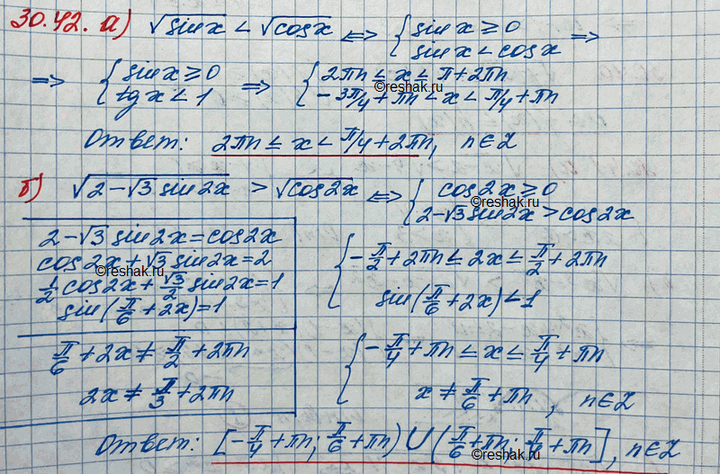 30.42. а) √sinx < √cosx ⟺ { sinx ≥ 0 ; sinx < cosx ⟹
⟹ { sinx ≥ 0 ; tgx < 1 ⟹ { 2πn ≤ x ≤ π + 2πn ; -3π/4 + πn < x < π/4 + πn
©reshak.ru
Ответ: 2πn ≤ x < π/4 + 2πn, n∈Z
б) √(2-√3 sin2x) > √cos2x ⟺ { cos2x ≥ 0 ; 2-√3 sin2x > cos2x
©reshak.ru
2-√3 sin2x = cos2x
cos2x + √3 sin2x = 2
©reshak.ru
1/2 cos2x + √3/2 sin2x = 1
sin(π/6 + 2x) = 1
{ -π/2 + 2πn ≤ 2x ≤ π/2 + 2πn
sin(π/6 + 2x) < 1
π/6 + 2x ≠ π/2 + 2πn
2x ≠ π/3 + 2πn
{ -π/4 + πn ≤ x ≤ π/4 + πn
x ≠ π/6 + πn, n∈Z
Ответ: [-π/4 + πn; π/6 + πn) ∪ (π/6 + πn; π/4 + πn], n∈Z
©reshak.ru